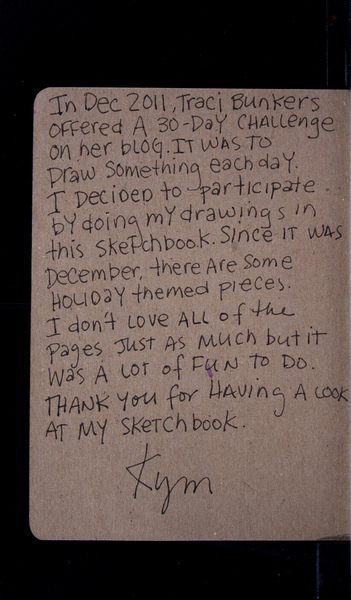 In Dec 2011, Traci Bunkers
OFFERED A 30-DAY CHALLENGE
on her blog. IT WAS TO
Draw Something each day.
I Decided to participate
by doing my drawings in
this Sketchbook. Since IT WAS
December, there Are Some
Holiday themed pieces.
I don't Love ALL of the
Pages JUST AS Much but it
WAS A LOT of FUN TO DO.
THANK YOU for HAVING A LOOK
AT MY SKETCHbook.
Kym